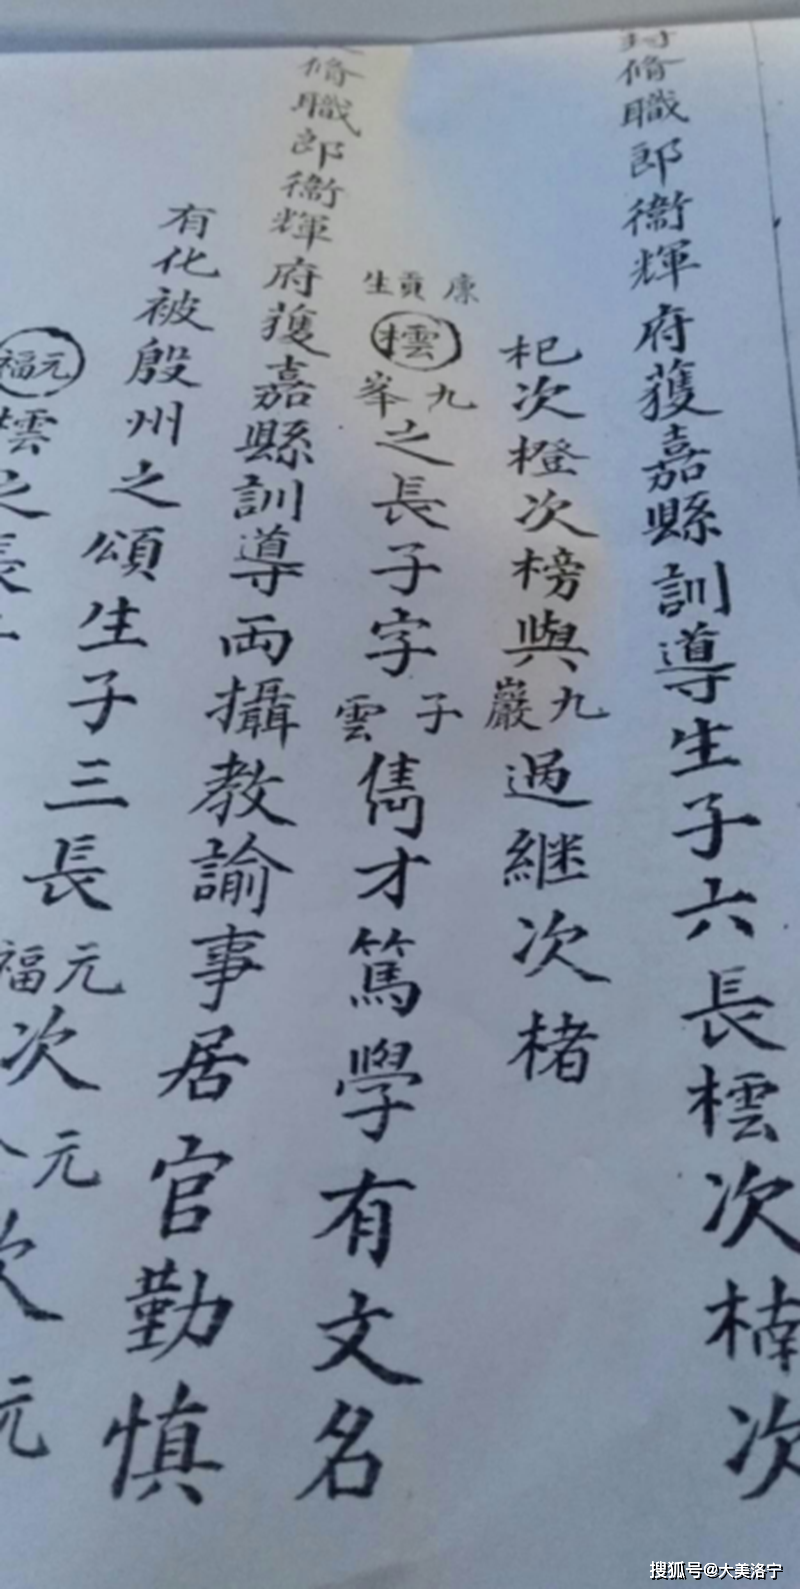 封脩職郎衞輝府獲嘉縣訓導生子六長橒次楠次
杞次橙次榜與九巖過継次楮
廪貢生橒九峯之長子字子雲儁才篤學有文名
脩職郎衞輝府獲嘉縣訓導両攝教諭事居官勤慎
有化被殷州之頌生子三長元福次元
元福橒之長子
次元
搜狐号@大美洛宁